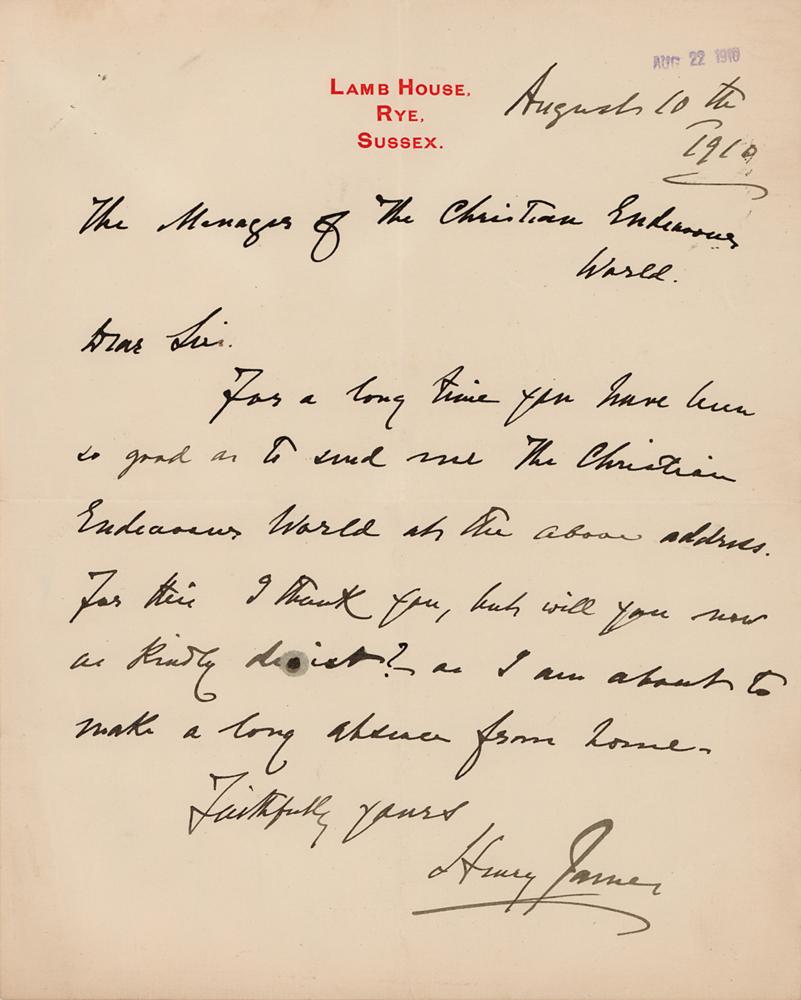 AUG 22 1910
LAMB HOUSE,
RYE,
SUSSEX.
August 10th
1910
The Manager of The Christian Endeavour
World.
Dear Sir.
For a long time you have been
so good as to send me The Christian
Endeavour World at the above address.
For this I thank you, but will you now
as kindly desist? as I am about to
make a long absence from home-
Faithfully yours
Henry James